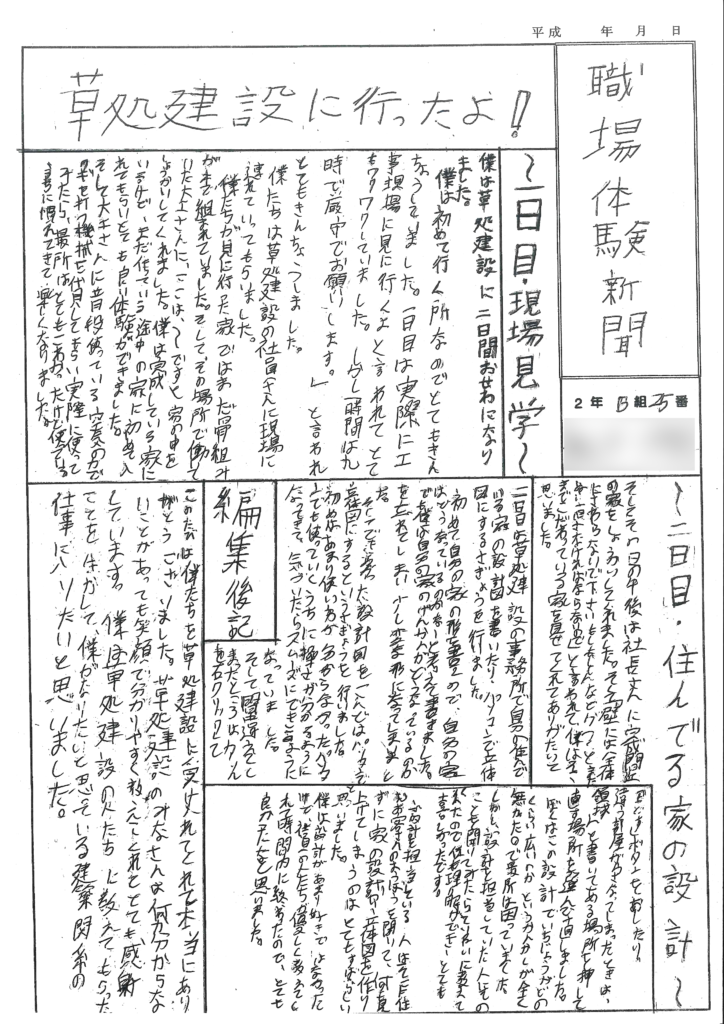 平成　年　月　日
職場体験新聞
2年 B組 25番
草処建設に行ったよ!
〜一日目・現場見学〜
僕は草処建設に二日間おせわになり
ました。
僕は初めて行く所なのでとてもきん
ちょうしていました。一日目は実際に工
事現場に見に行くよと言われてとて
もワクワクしていました。しかし「時間は九
時で厳守でお願いします。」と言われ
とてもきんちょうしました。
僕たちは草処建設の社員さんに現場に
連れていってもらいました。
僕たちが見に行った家ではまだ骨組み
がまで組まれていました。そして、その場所で働いて
いた大工さんに、ここは、〜ですと家の中を
しょうかいしてくれました。僕は完成している家に
いるけど、まだ作っている途中の家に初めて入
れてもらいとても良い体験ができました。
そして大工さんに普段使っている
機械を使って
みたら、最初はとてもこわかったけど使っている
うちに慣れてきて楽しくなりました。
〜二日目・住んでる家の設計〜
そしてその日の午後は社長さんに完成間近
の家をしょうかいしてくれました。その
にさわらないで下さい
と言われて、僕は
家を見せてくれてありがたいと
思いました。
二日目は草処建設の事務所で自分の住んで
いる家の設計図を書いたり、パソコンで立体
図にするさぎょうを行いました。
初めて自分の家の形を書くので、自分の家
はどうなっているのかなと考えて書きました。
で、僕は自分の家のげんかんがどうなっているのか
を忘れてしまい少し変な形になってしまいまし
た。
そしてできあがった設計図を
立体図にするというさぎょうを行いました。
初めはあまり使い方が分からなかったけど
使っていくうちに
なってきて、気づいたらスムーズにできるように
なっていました。
そして間違えて
を右クリックして
ボタンをおしたり、
違う部屋ができてしまったときは、
領域と書いてある場所を押して
直す場所を選んで直しました。
ぼくはこの設計でいちょうがどの
くらい広いかという分からなくて
無かったので最初は困っていました。
しかし、設計を担当していた人にその
ことを聞いてみたら、ていねいに教えて
くれたので僕も理解ができて、とても
喜しかったです。
設計を担当している人はその住
むお客さんのようぼうを聞いて、何も見
ずに家の設計や立体図を作り
上げてしまうのはとてもすばらしいと
思いました。
僕は設計があまり好きではなかった
けど社員の人たちが優しく教えてく
れて時間内に終わったので、とても
良かったと思いました。
編集後記
このたびは僕たちを草処建設に受け入れてくれて本当にあり
がとうございました。草処建設のみなさんは何か分からな
いことがあっても笑顔で分かりやすく教えてくれてとても感謝
しています。僕は草処建設の人たちに教えてもらった
ことを生かして、僕がなりたいと思っている建築関係の
仕事に入りたいと思いました。